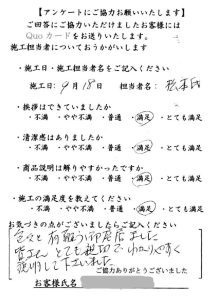 【アンケートにご協力お願いいたします】
ご回答にご協力いただけましたお客様には
Quoカードをお送りいたします。
施工担当者についておうかがいします
・施工日・施工担当者名をご記入ください
施工日: 9月18日 担当者名: 松本氏
・挨拶はできていましたか
・不満 ・やや不満 ・普通 ・満足 ・とても満足
・清潔感はありましたか
・不満 ・やや不満 ・普通 ・満足 ・とても満足
・商品説明は解りやすかったですか
・不満 ・やや不満 ・普通 ・満足 ・とても満足
・施工の満足度を教えてください
・不満 ・やや不満 ・普通 ・満足 ・とても満足
お気づきの点がございましたらご記入ください
色々と有難う御座居ました
皆さん とても親切で わかりやすく
説明して下さいました
ご協力ありがとうございました
お客様氏名